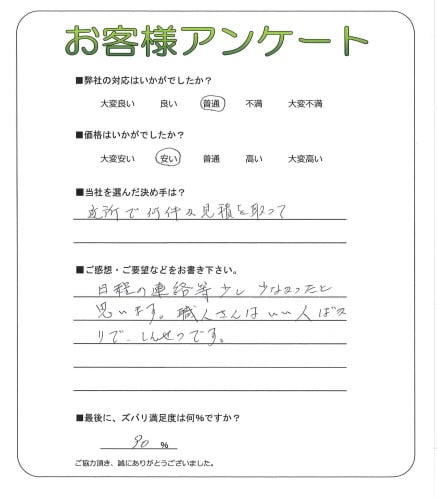 お客様アンケート
■弊社の対応はいかがでしたか？
大変良い 良い 普通 不満 大変不満
■価格はいかがでしたか？
大変安い 安い 普通 高い 大変高い
■当社を選んだ決め手は？
近所で何件か見積を取って
■ご感想・ご要望などをお書き下さい。
日程の連絡等少し少なかったと
思います。職人さんはいい人ばか
りで、しんせつです。
■最後に、ズバリ満足度は何％ですか？
90 ％
ご協力頂き、誠にありがとうございました。